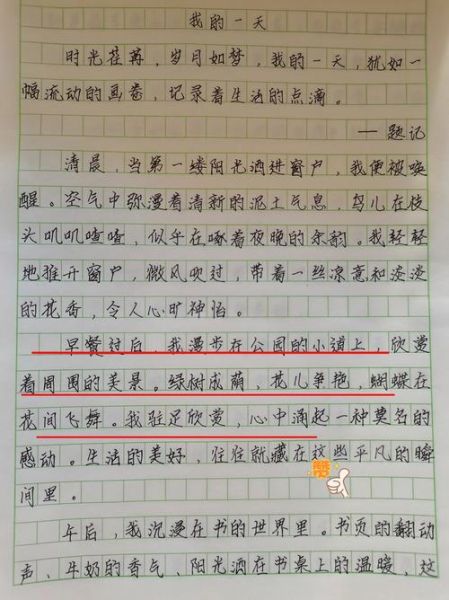 我的一天
时光荏苒，岁月如梦，我的一天，犹如一
幅流动的画卷，记录着生活的点滴。
—题记
清晨，当第一缕阳光洒进窗户，我便被唤
醒。空气中弥漫着清新的泥土气息，鸟儿在枝
头叽叽喳喳，似乎在啄着夜晚的余韵。我轻轻
地推开窗户，微风吹过，带着一丝凉意和淡淡
的花香，令人心旷神怡。
早餐过后，我漫步在公园的小道上，欣赏
着周围的美景。绿树成荫，花儿争艳，蝴蝶在
花间飞舞。我驻足欣赏，心中涌起一种莫名的
感动。生活的美好，往往就藏在这些平凡的瞬
间里。
赞
午后，我沉漫在书的世界里。书页的翻动
声、牛奶的香气、阳光洒在书桌上的温暖，